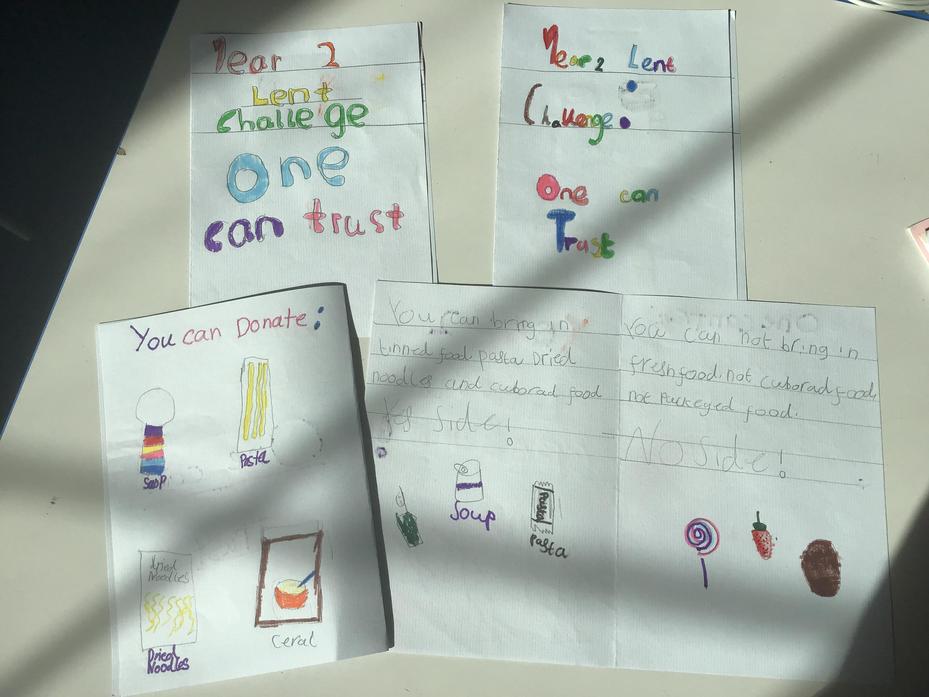 Year 2
Lent
Challe'ge
One
can trust
Year 2 Lent
Challenge.
One can
Trust
You can Donate:
Soup
Pasta
Dried
Noodles
Dried
Noodles
Ceral
You can bring in
tinned food pasta Dried
noodles and cuborad food
Yes side!
Soup
Pasta
Pasta
You can not bring in
fresh food. not cuborad food,
not Packeyed food.
No side!